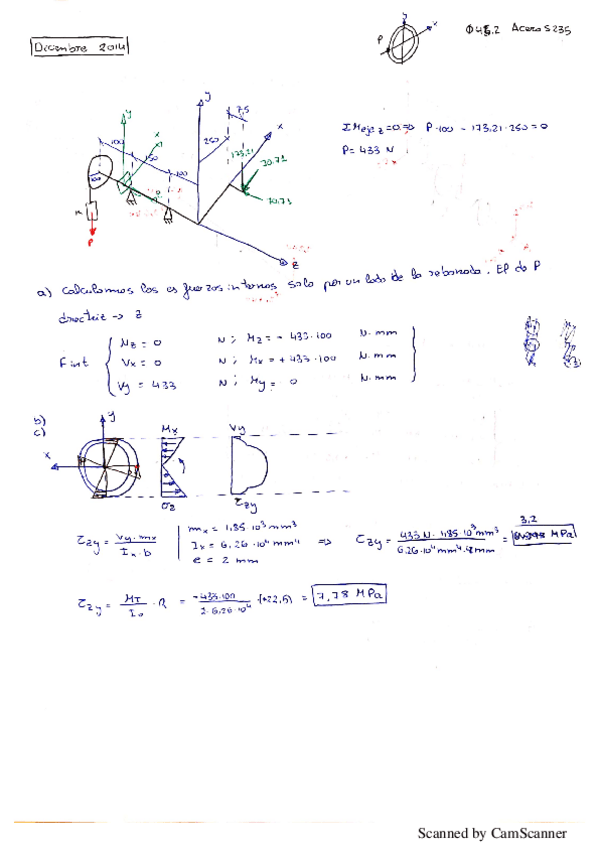 Diciembre 2014
Φ45.2 Acero S235
y
x
P
ΣM eje z = 0 => P·100 - 173,21·250 = 0
P = 433 N
y
x
100
150
100
100
P
y
7,5
x
250
173,21
70.71
70.71
z
a) Calculamos los esfuerzos internos solo por un lado de la rebanada. EP de P
directriz -> z
F int
Nz = 0 N ; Mz = - 433·100 N·mm
Vx = 0 N ; Mx = + 433·100 N·mm
Vy = 433 N ; My = 0 N·mm
b)
c)
y
x
Mx
Vy
σz
τzy
τzy = Vy·mx / Ix·b
mx = 1,85·10³ mm³
Ix = 6,26·10⁴ mm⁴
e = 2 mm
=> τzy = 433 N · 1,85·10³ mm³ / 6.26·10⁴ mm⁴·4mm = 3,2 MPa
τzy = MT / Io · R = -433·100 / 2·6,26·10⁴ · (+22,5) = 7,78 MPa
Scanned by CamScanner